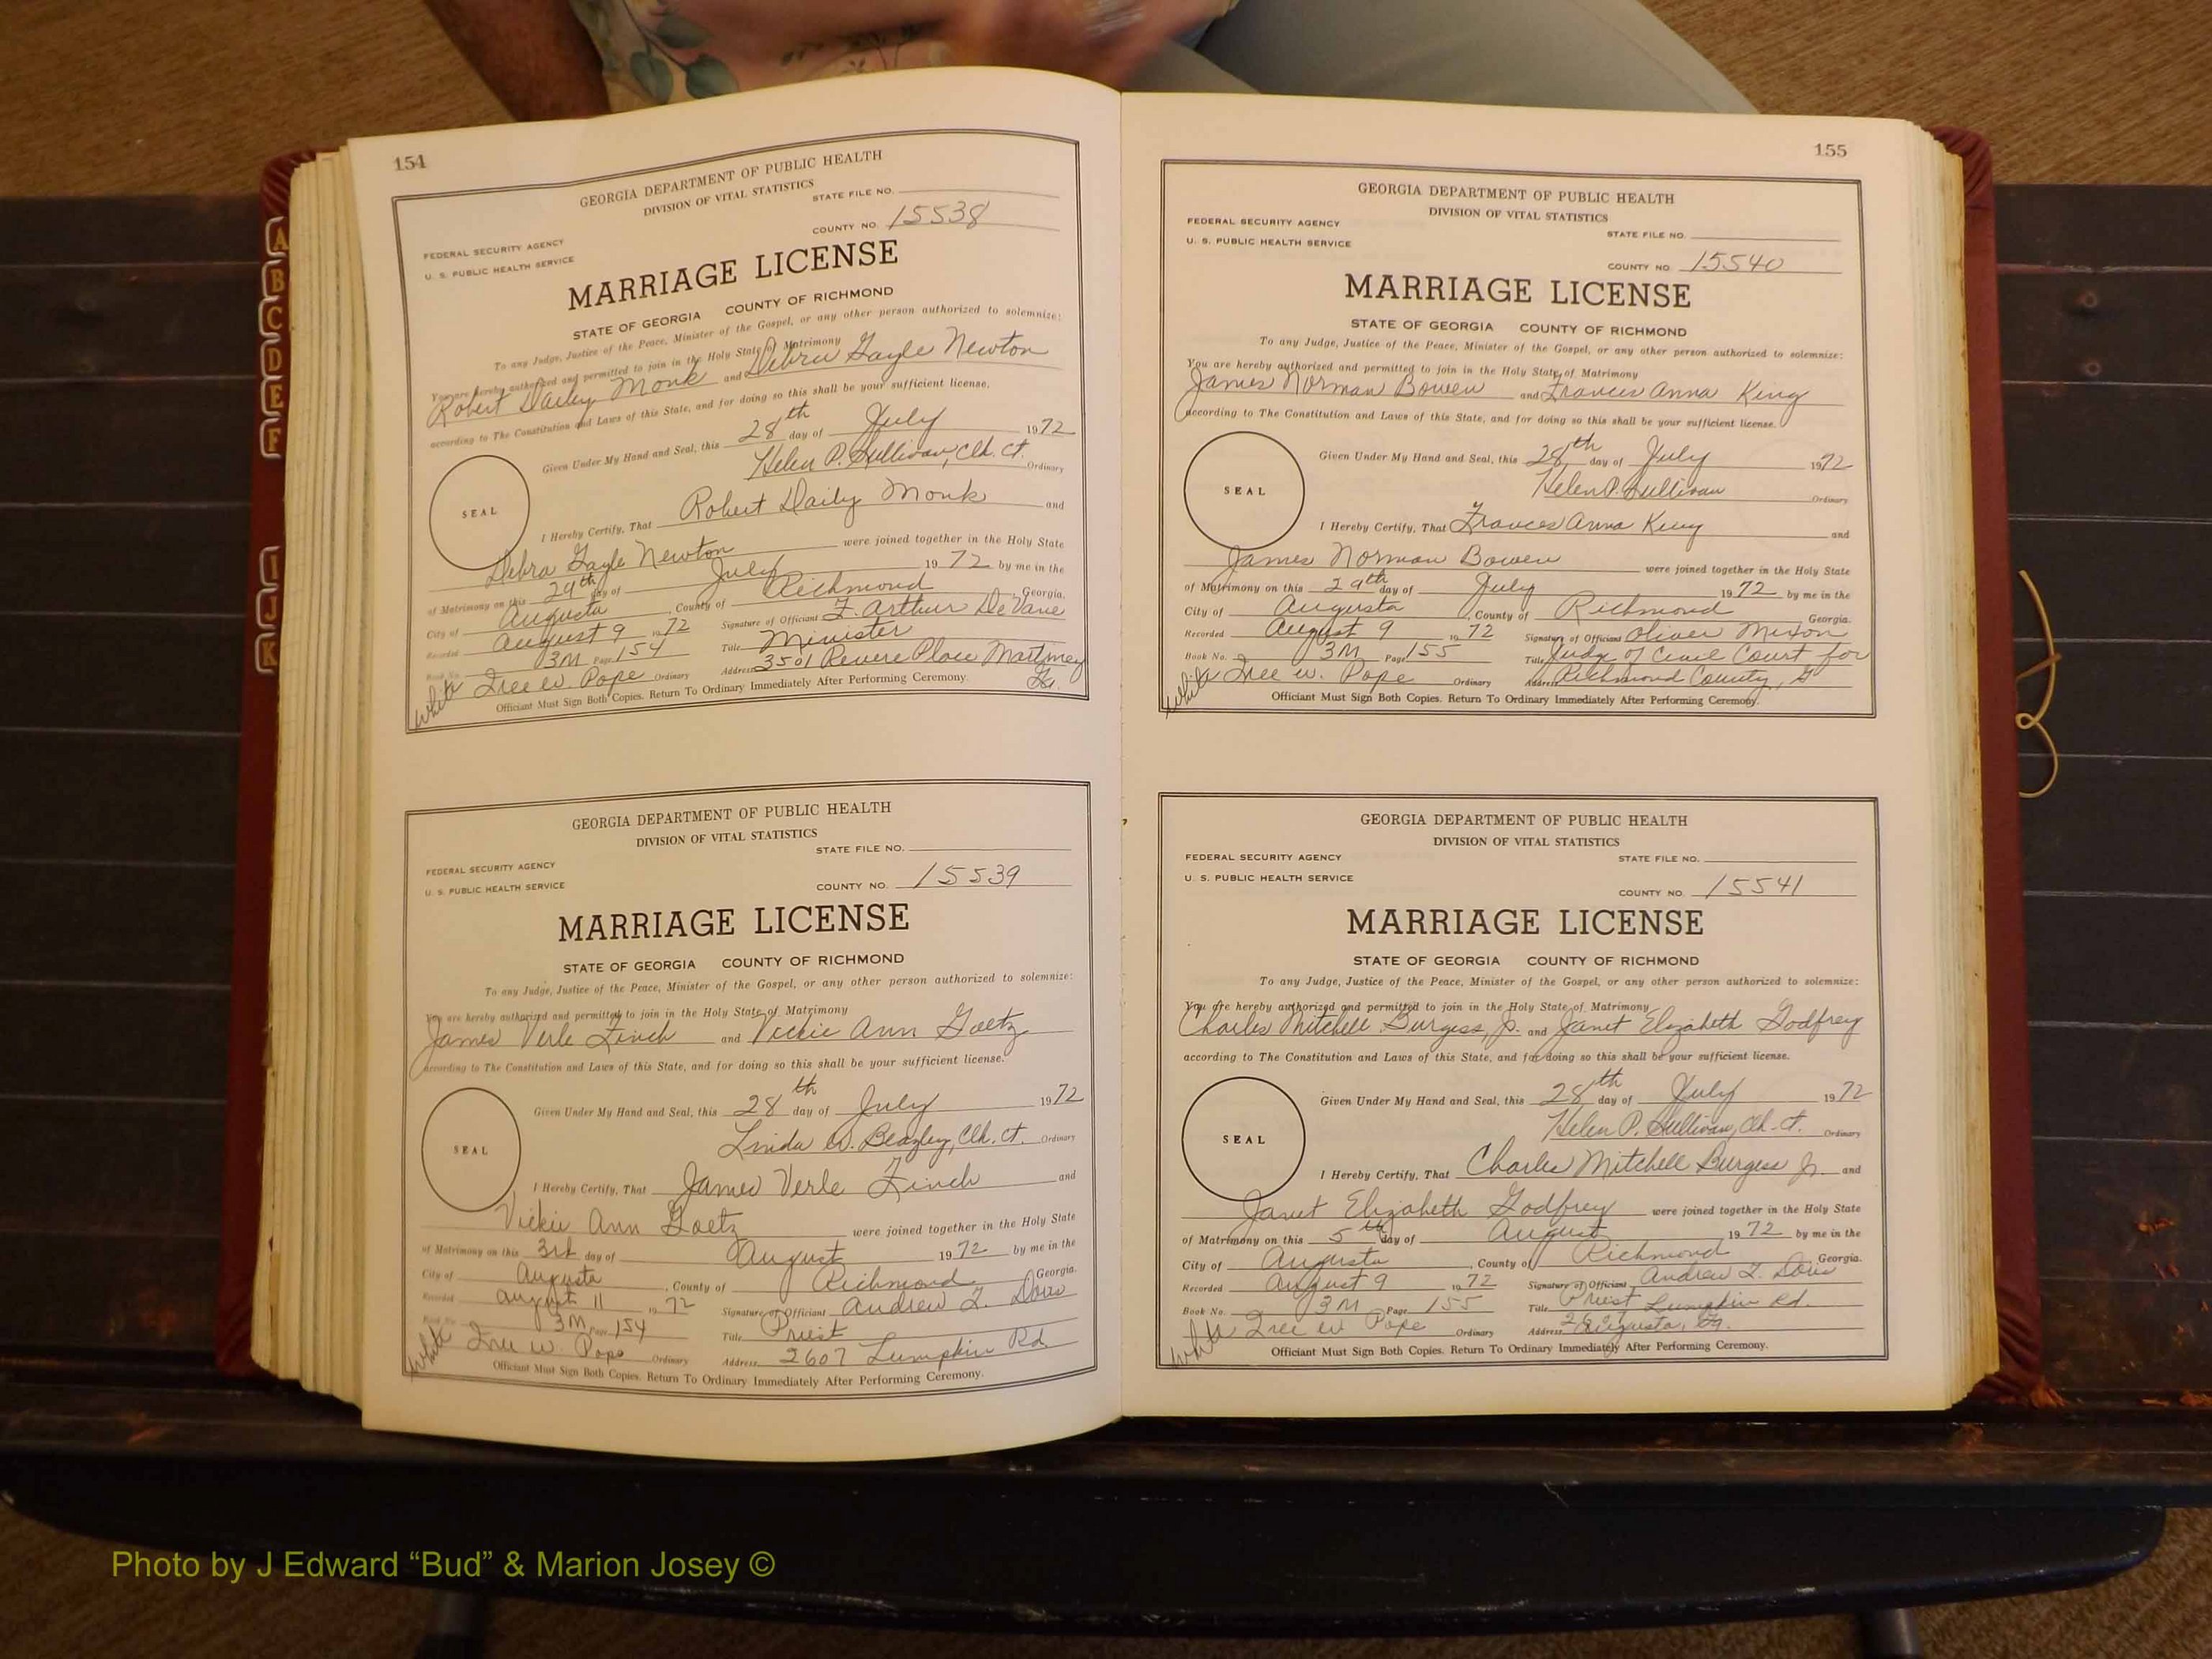 154
GEORGIA DEPARTMENT OF PUBLIC HEALTH
DIVISION OF VITAL STATISTICS
STATE FILE NO.
FEDERAL SECURITY AGENCY
COUNTY NO. 15538
U. S. PUBLIC HEALTH SERVICE
MARRIAGE LICENSE
STATE OF GEORGIA COUNTY OF RICHMOND
To any Judge, Justice of the Peace, Minister of the Gospel, or any other person authorized to solemnize:
You are hereby authorized and permitted to join in the Holy State of Matrimony
Robert Daily Monk and Debra Gayle Newton
according to The Constitution and Laws of this State, and for doing so this shall be your sufficient license.
Given Under My Hand and Seal, this 28th day of July 1972
Helen P. Sullivan, Clk. Ct. Ordinary
SEAL
I Hereby Certify, That Robert Daily Monk and
Debra Gayle Newton were joined together in the Holy State
of Matrimony on this 29th day of July 19 72 by me in the
City of Augusta, County of Richmond Georgia.
Recorded August 9 1972 Signature of Officiant F. Arthur DeVane
Book No. 3M Page 154 Title Minister
white Tree W. Pope Ordinary Address 3501 Revere Place Martinez Ga.
Officiant Must Sign Both Copies. Return To Ordinary Immediately After Performing Ceremony.
GEORGIA DEPARTMENT OF PUBLIC HEALTH
DIVISION OF VITAL STATISTICS
STATE FILE NO.
FEDERAL SECURITY AGENCY
U. S. PUBLIC HEALTH SERVICE
COUNTY NO. 15539
MARRIAGE LICENSE
STATE OF GEORGIA COUNTY OF RICHMOND
To any Judge, Justice of the Peace, Minister of the Gospel, or any other person authorized to solemnize:
You are hereby authorized and permitted to join in the Holy State of Matrimony
James Verle Finch and Vickie Ann Goetz
according to The Constitution and Laws of this State, and for doing so this shall be your sufficient license.
Given Under My Hand and Seal, this 28th day of July 1972
Linda W. Beazley, Clk. Ct. Ordinary
SEAL
I Hereby Certify, That James Verle Finch and
Vickie Ann Goetz were joined together in the Holy State
of Matrimony on this 3rd day of August 1972 by me in the
City of Augusta, County of Richmond Georgia.
Recorded August 11 1972 Signature of Officiant Andrew J. Doris
Book No. 3M Page 154 Title Priest
white Tree W. Pope Ordinary Address 2607 Lumpkin Rd.
Officiant Must Sign Both Copies. Return To Ordinary Immediately After Performing Ceremony.
155
GEORGIA DEPARTMENT OF PUBLIC HEALTH
DIVISION OF VITAL STATISTICS
FEDERAL SECURITY AGENCY
STATE FILE NO.
U. S. PUBLIC HEALTH SERVICE
COUNTY NO 15540
MARRIAGE LICENSE
STATE OF GEORGIA COUNTY OF RICHMOND
To any Judge, Justice of the Peace, Minister of the Gospel, or any other person authorized to solemnize:
You are hereby authorized and permitted to join in the Holy State of Matrimony
James Norman Bowen and Frances Anna King
according to The Constitution and Laws of this State, and for doing so this shall be your sufficient license.
Given Under My Hand and Seal, this 28th day of July 1972
Helen P. Sullivan Ordinary
SEAL
I Hereby Certify, That Frances Anna King and
James Norman Bowen were joined together in the Holy State
of Matrimony on this 29th day of July 1972 by me in the
City of Augusta, County of Richmond Georgia.
Recorded August 9 1972 Signature of Officiant Oliver Mixon
Book No. 3M Page 155 Title Judge of Civil Court for
white Tree W. Pope Ordinary Address Richmond County, G
Officiant Must Sign Both Copies. Return To Ordinary Immediately After Performing Ceremony.
GEORGIA DEPARTMENT OF PUBLIC HEALTH
DIVISION OF VITAL STATISTICS
FEDERAL SECURITY AGENCY
STATE FILE NO.
U. S. PUBLIC HEALTH SERVICE
COUNTY NO. 15541
MARRIAGE LICENSE
STATE OF GEORGIA COUNTY OF RICHMOND
To any Judge, Justice of the Peace, Minister of the Gospel, or any other person authorized to solemnize:
You are hereby authorized and permitted to join in the Holy State of Matrimony
Charles Mitchell Burgess, Jr. and Janet Elizabeth Godfrey
according to The Constitution and Laws of this State, and for doing so this shall be your sufficient license.
Given Under My Hand and Seal, this 28th day of July 1972
Helen P. Sullivan, Clk. Ct. Ordinary
SEAL
I Hereby Certify, That Charles Mitchell Burgess Jr. and
Janet Elizabeth Godfrey were joined together in the Holy State
of Matrimony on this 5th day of August 1972 by me in the
City of Augusta, County of Richmond Georgia.
Recorded August 9 1972 Signature of Officiant Andrew J. Doris
Book No. 3M Page 155 Title Priest Lumpkin Rd.
white Tree W. Pope Ordinary Address Augusta, Ga.
Officiant Must Sign Both Copies. Return To Ordinary Immediately After Performing Ceremony.
A
B
C
D
E
F
I
J
K
Photo by J Edward “Bud” & Marion Josey ©